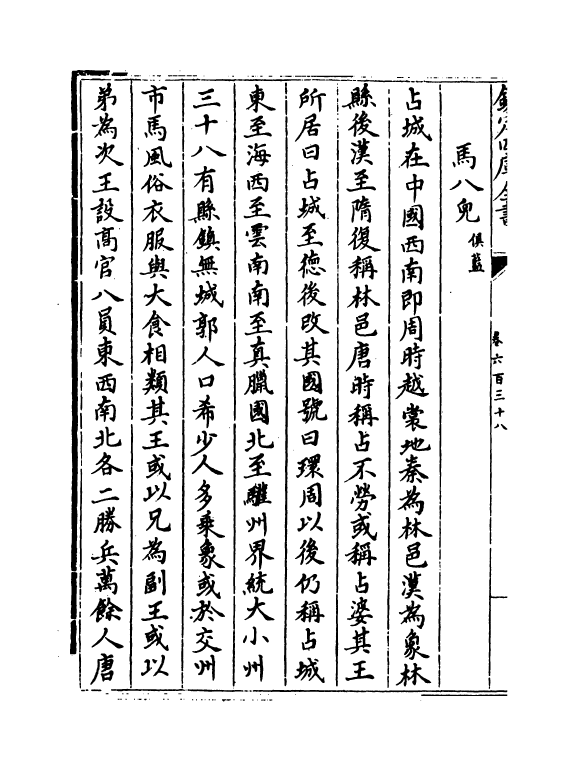 欽定四庫全書
卷六百三十八
馬八兒 俱藍
占城在中國西南即周時越裳地秦為林邑漢為象林
縣後漢至隋復稱林邑唐時稱占不勞或稱占婆其王
所居曰占城至德後改其國號曰環周以後仍稱占城
東至海西至雲南南至真臘國北至驩州界統大小州
三十八有縣鎮無城郭人口希少人多乘象或於交州
市馬風俗衣服與大食相類其王或以兄為副王或以
弟為次王設高官八員東西南北各二勝兵萬餘人唐